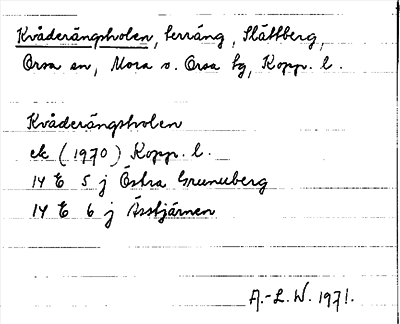 Kvåderängsholen, terräng, Slättberg,
Orsa sn, Mora o. Orsa tg, Kopp. l.
Kvåderängsholen
ek (1970) Kopp. l.
14 E 5 j Östra Grunuberg
14 E 6 j Åsstjärnen
A.-L. W. 1971.